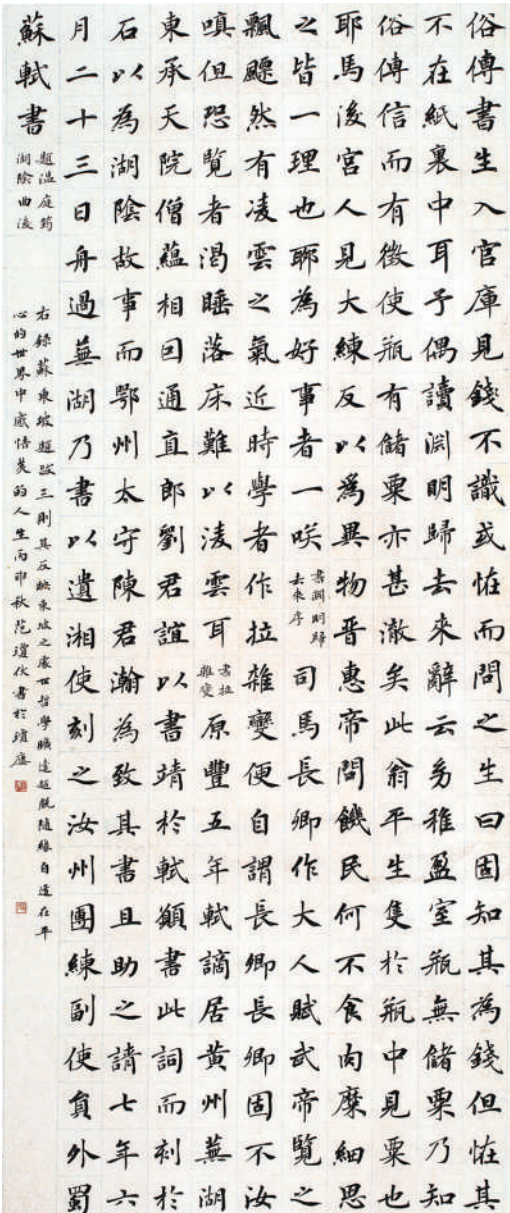 俗傳書生入官庫見錢不識或恠而問之生曰固知其為錢但恠其
不在紙裏中耳予偶讀淵明歸去來辭云幼稚盈室瓶無儲粟乃知
俗傳信而有徵使瓶有儲粟亦甚澈矣此翁平生隻於瓶中見粟也
耶馬後宮人見大練反以為異物晉惠帝問饑民何不食肉糜細思
之皆一理也聊為好事者一咲 書淵明歸去來序 司馬長卿作大人賦武帝覽之
飄飄然有凌雲之氣近時學者作拉雜變便自謂長卿長卿固不汝
嗔但恐覽者渴睡落床難以淩雲耳 書拉雜變 原豐五年軾謫居黃州蕪湖
東承天院僧蘊相因通直郎劉君誼以書靖於軾願書此詞而刻於
石以為湖陰故事而鄂州太守陳君瀚為致其書且助之請七年六
月二十三日舟過蕪湖乃書以遺湘使刻之汝州團練副使員外蜀
蘇軾書 題溫庭筠湖陰曲後
右錄蘇東坡題跋三則其反映東坡之處世哲學曠達超脫隨緣自適在平
心的世界中感悟美的人生丙申秋范瓊伏書於瓊廬